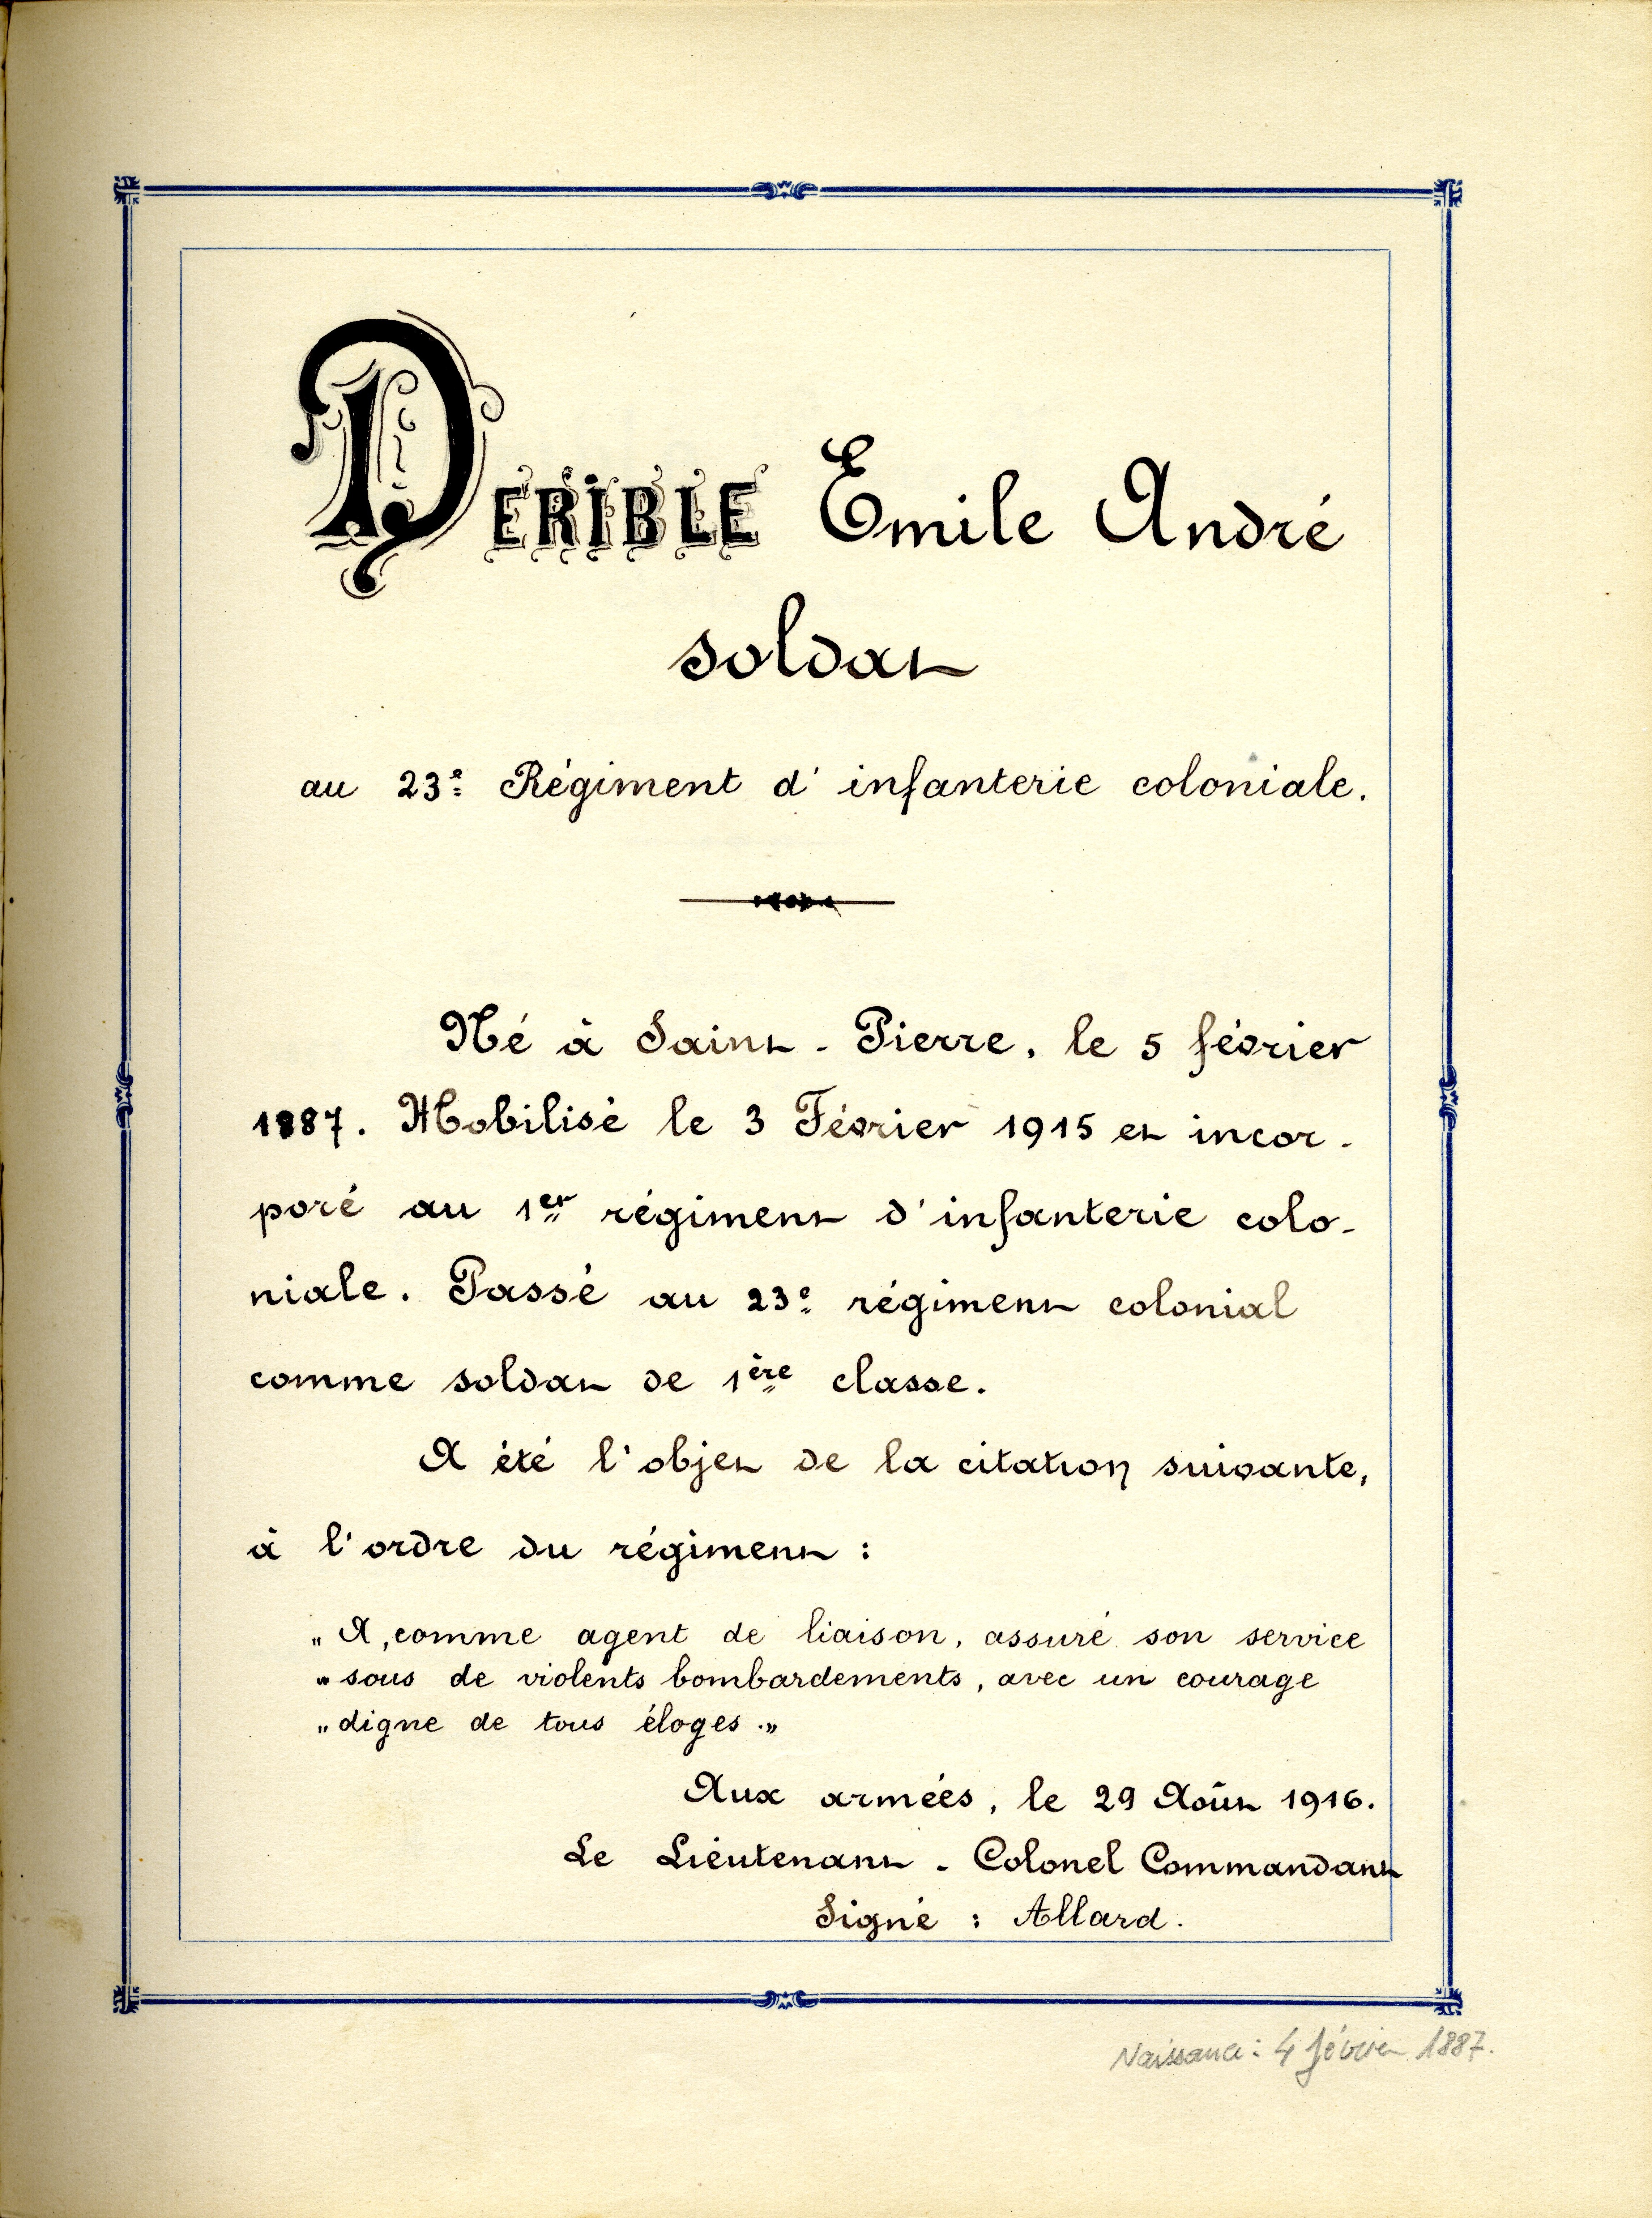 DERIBLE Emile André
soldat
au 23e Régiment d'infanterie coloniale.
Né à Saint-Pierre, le 5 février
1887. Mobilisé le 3 Février 1915 et incor-
poré au 1er régiment d'infanterie colo-
niale. Passé au 23e régiment colonial
comme soldat de 1ère classe.
A été l'objet de la citation suivante,
à l'ordre du régiment :
"A, comme agent de liaison, assuré son service
"sous de violents bombardements, avec un courage
"digne de tous éloges."
Aux armées, le 29 Août 1916.
Le Lieutenant-Colonel Commandant
Signé : Allard.
Naissance : 4 février 1887.